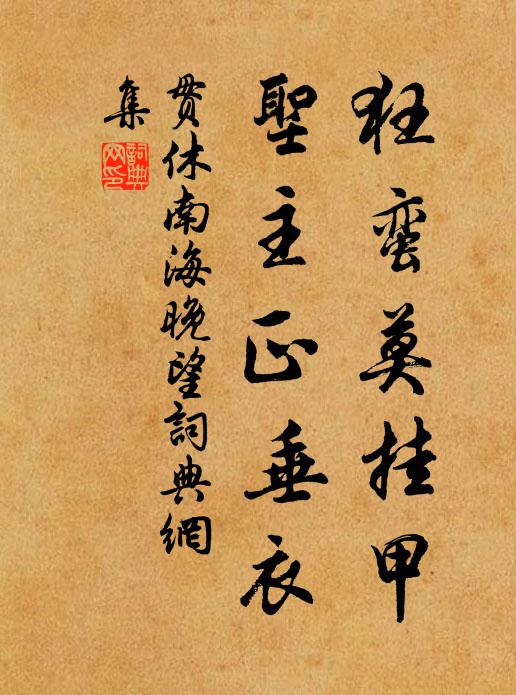 狂蛮莫挂甲
聖主正垂衣
贯休南海晚望詞典網
集
詞典
网印